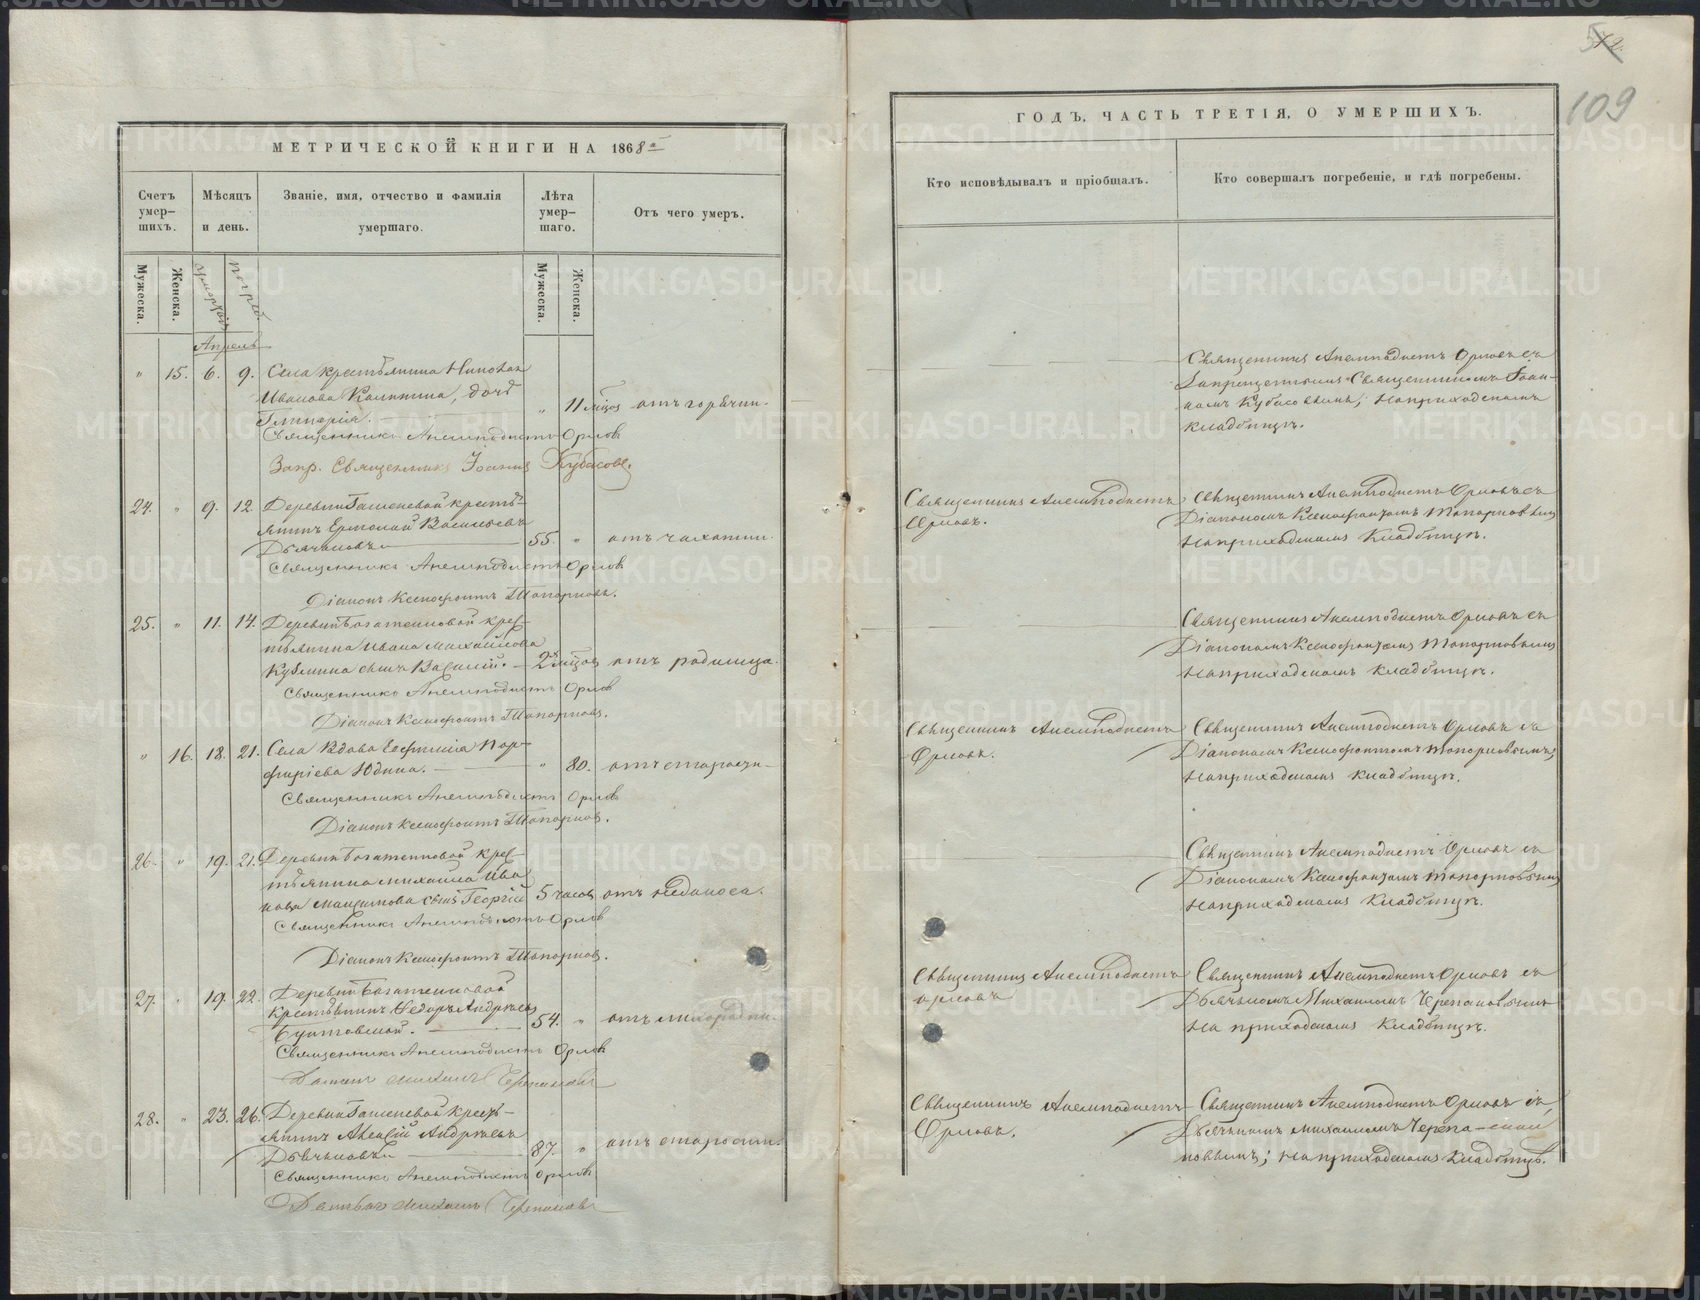 МЕТРИЧЕСКОЙ КНИГИ НА 1868 й
Счетъ умер-шихъ.
Мѣсяцъ и день.
Званіе, имя, отчество и фамилія умершаго.
Лѣта умер-шаго.
Отъ чего умеръ.
Мужеска.
Женска.
Мужеска.
Женска.
Апрель
" 15. 6. 9. Села крестьянина
Иванова Калинина, дочь
" 11 мѣсяц. отъ горячки.
Священникъ Анемподистъ Орловъ
Запр. Священникъ Іоаннъ Кубасовъ.
24. " 9. 12. Деревни крестъ-
янинъ Ермолай Васильевъ
Дьячковъ 55. " отъ чахотки.
Священникъ Анемподистъ Орловъ
Діаконъ Ксенофонтъ Топорковъ.
25. " 11. 14. Деревни Богатенковой крес-
тьянина Ивана Михайлова
сынъ Василій. 2 мѣсяц. отъ родимца.
Священникъ Анемподистъ Орловъ
Діаконъ Ксенофонтъ Топорковъ.
" 16. 18. 21. Села Вдова Евфимія Пор-
фиріева Юдина. " 80. отъ старости
Священникъ Анемподистъ Орловъ
Діаконъ Ксенофонтъ Топорковъ.
26. " 19. 21. Деревни Богатенковой крес-
тьянина Михаила Ива
нова Максимова сынъ Георгій 5 часов. отъ недоноса.
Священникъ Анемподистъ Орловъ
Діаконъ Ксенофонтъ Топорковъ.
27. " 19. 22. Деревни Богатенковой
крестьянинъ Ѳедоръ Андреевъ
54. " отъ лихорадки.
Священникъ Анемподистъ Орловъ
Дьячекъ Михаилъ Черепановъ
28. " 23. 26. Деревни крестъ-
янинъ Алексій Андреевъ
Дьячковъ 87. " отъ старости.
Священникъ Анемподистъ Орловъ
Дьячекъ Михаилъ Черепановъ
109
ГОДЪ, ЧАСТЬ ТРЕТІЯ, О УМЕРШИХЪ.
Кто исповѣдывалъ и пріобщалъ.
Кто совершалъ погребеніе, и гдѣ погребены.
Священникъ Анемподистъ Орловъ съ
Запрещеннымъ Священникомъ Іоан-
номъ Кубасовымъ, на приходскомъ
кладбищѣ.
Священникъ Анемподистъ
Орловъ.
Священникъ Анемподистъ Орловъ съ
Діакономъ Ксенофонтомъ Топорковымъ
на приходскомъ кладбищѣ.
Священникъ Анемподистъ Орловъ съ
Діакономъ Ксенофонтомъ Топорковымъ
на приходскомъ кладбищѣ.
Священникъ Анемподистъ
Орловъ.
Священникъ Анемподистъ Орловъ съ
Діакономъ Ксенофонтомъ Топорковымъ,
на приходскомъ кладбищѣ.
Священникъ Анемподистъ Орловъ съ
Діакономъ Ксенофонтомъ Топорковымъ
на приходскомъ кладбищѣ.
Священникъ Анемподистъ
Орловъ
Священникъ Анемподистъ Орловъ съ
Дьячкомъ Михаиломъ Черепановымъ
на приходскомъ кладбищѣ.
Священникъ Анемподистъ
Орловъ.
Священникъ Анемподистъ Орловъ съ
Дьячкомъ Михаиломъ Черепа-
новымъ; на приходскомъ кладбищѣ.
METRIKI.GASO-URAL.RU